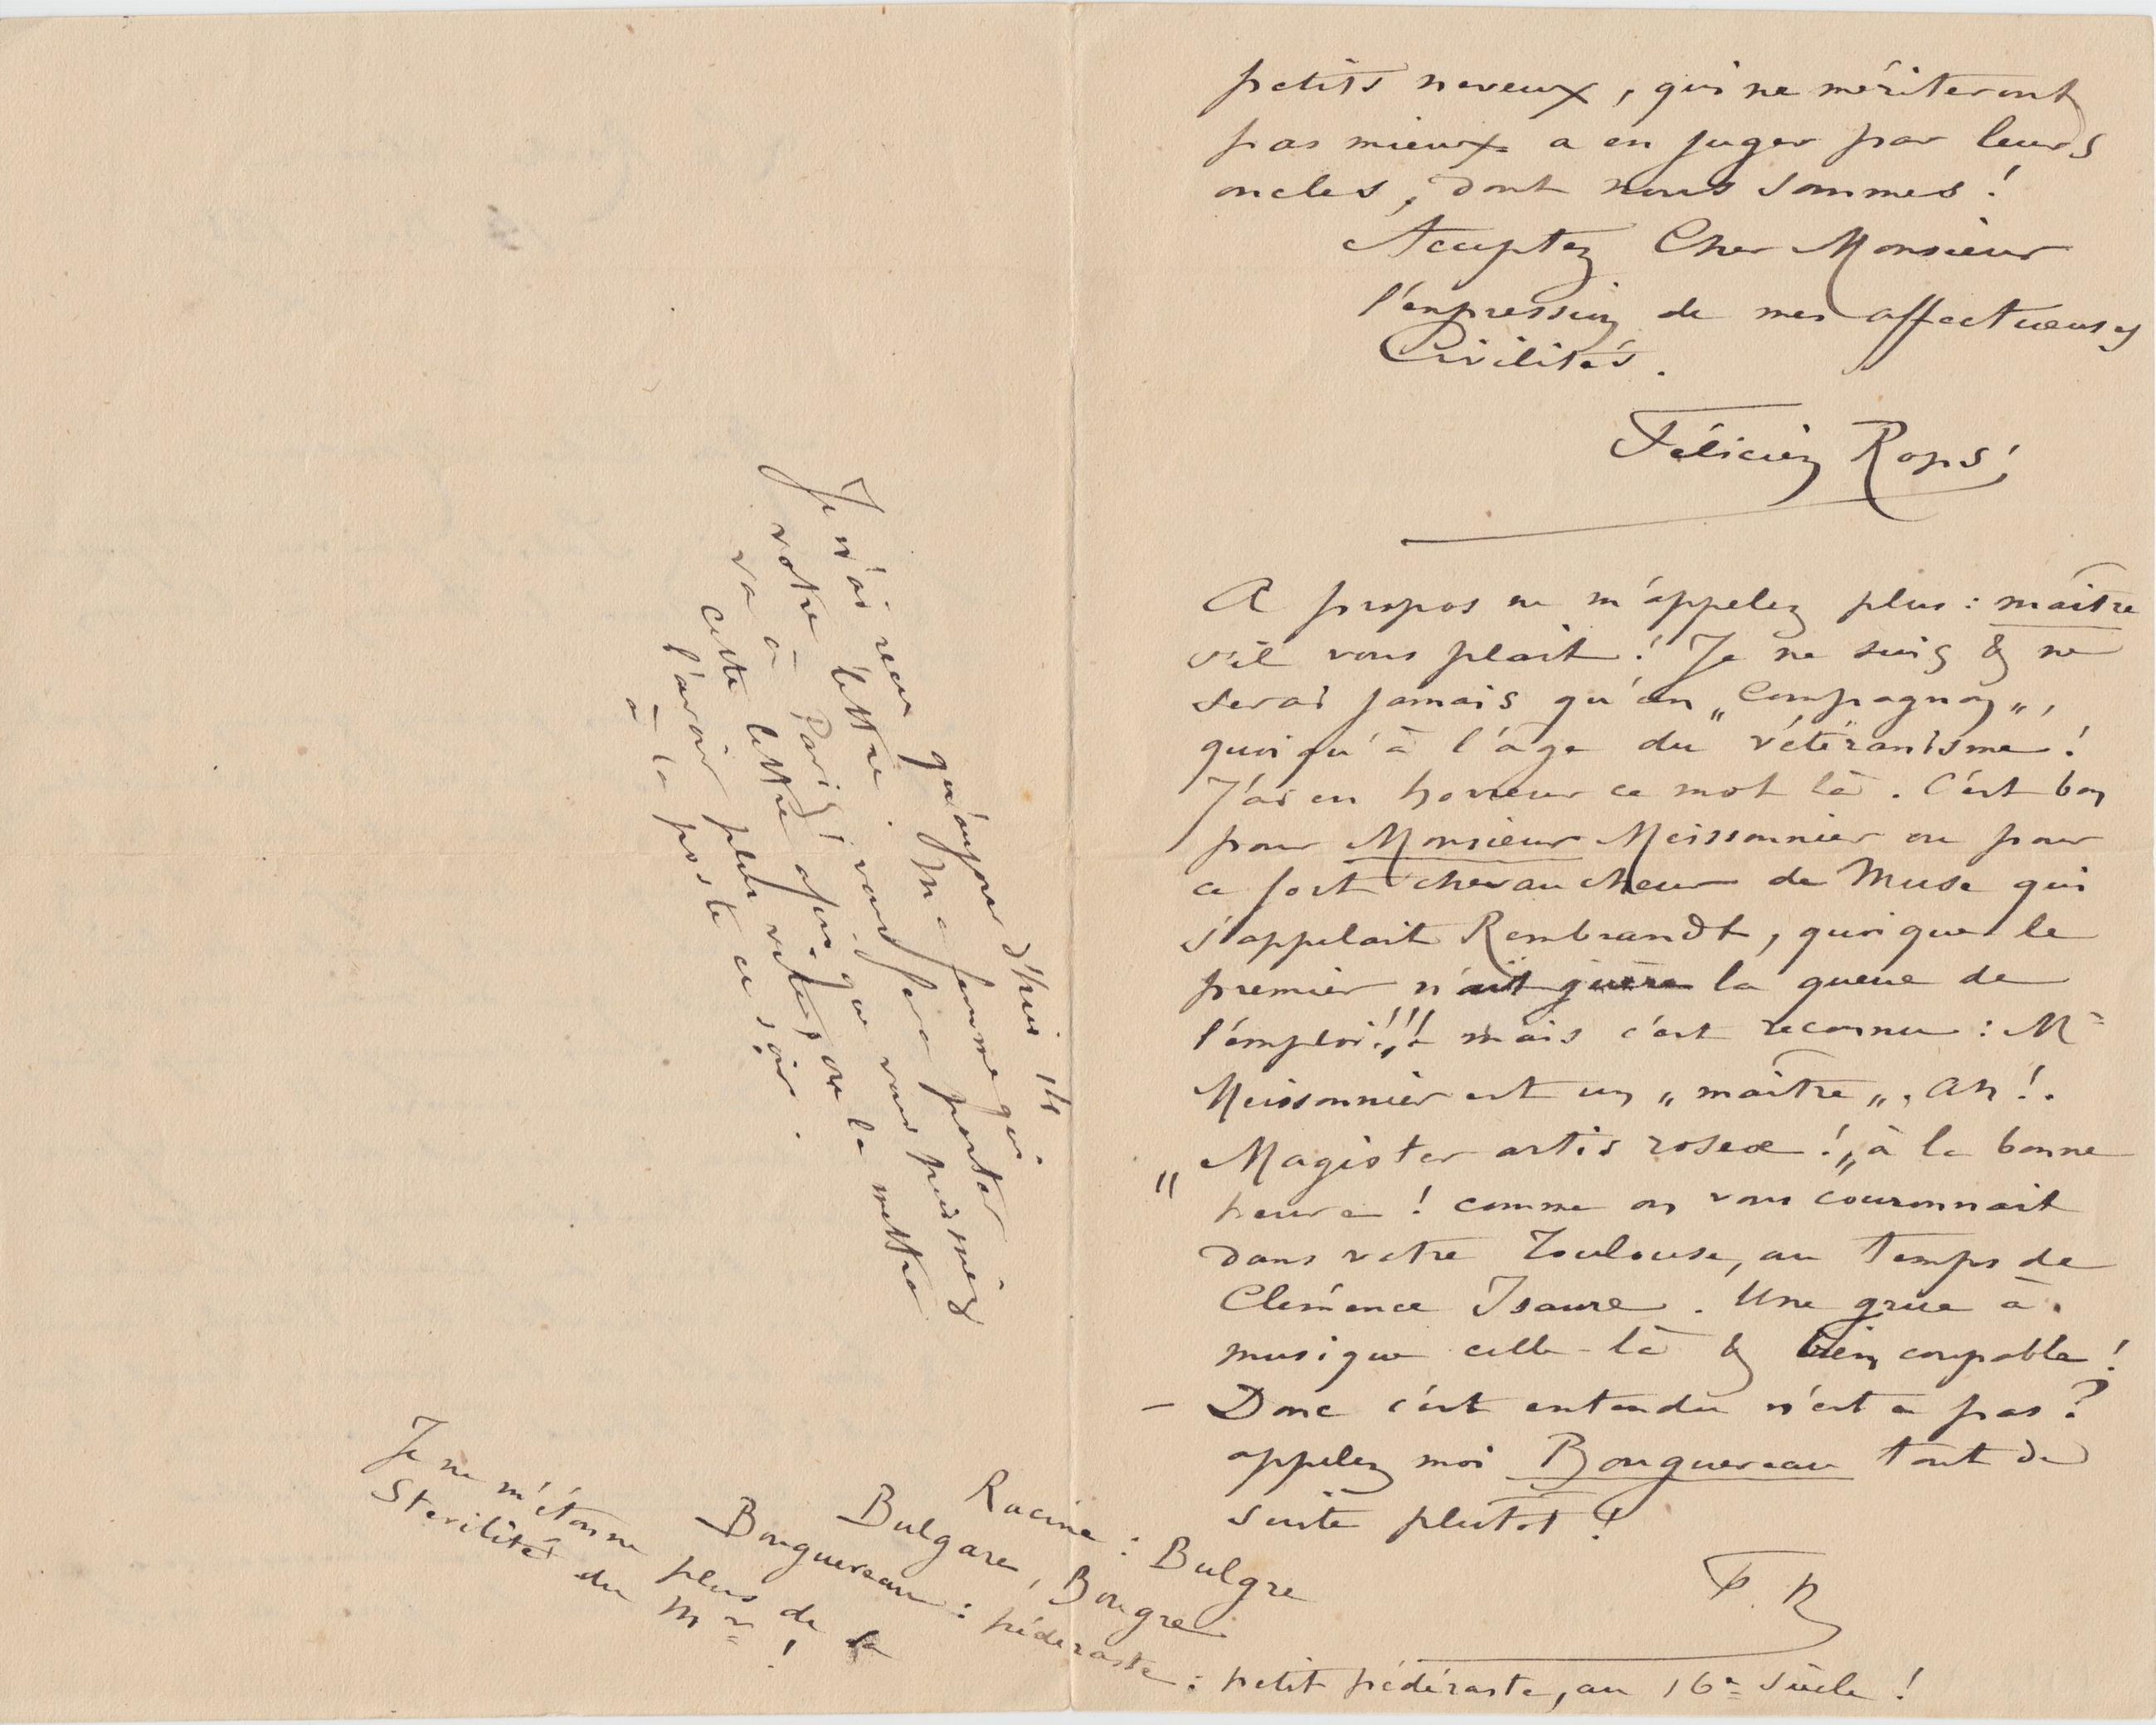 petits neveux, qui ne mériteront
pas mieux a en juger par leurs
oncles, dont nous sommes !
Acceptez Cher Monsieur
l'expression de mes affectueuses
Civilités.
Félicien Rops
A propos ne m'appelez plus : maître
s'il vous plait ! Je ne suis & ne
serai jamais qu'un „Compagnon„,
quoiqu'à l'âge du vétéranisme !
J'ai en horreur ce mot là. C'est bon
pour Monsieur Meissonnier ou pour
ce fort chevaucheur de Muse qui
s'appelait Rembrandt, quoique le
premier n'ait guère la queue de
l'emploi !!! mais c'est reconnu : Mr
Meissonnier est un „maître„. Ah !.
„Magister artis roseæ !„ à la bonne
heure ! comme on vous couronnait
dans votre Toulouse, au temps de
Clémence Isaure. Une grue à
musique celle-là & bien coupable !
– Donc c'est entendu n'est ce pas ?
appelez moi Bouguereau tout de
suite plutot !
F. R
Racine : Bulgre
Bulgare, Bougre.
Bouguereau : pédéraste : petit pédéraste, au 16e Siècle !
Je ne m'étonne plus de la
Sterilité du Mr !
Je n'ai reçu qu'aujourd'hui 14
votre lettre. Ma femme qui
va à Paris, vous fera porter
cette lettre afin que vous puissiez
l'avoir plus vite, ou la mettra
à la poste ce soir.